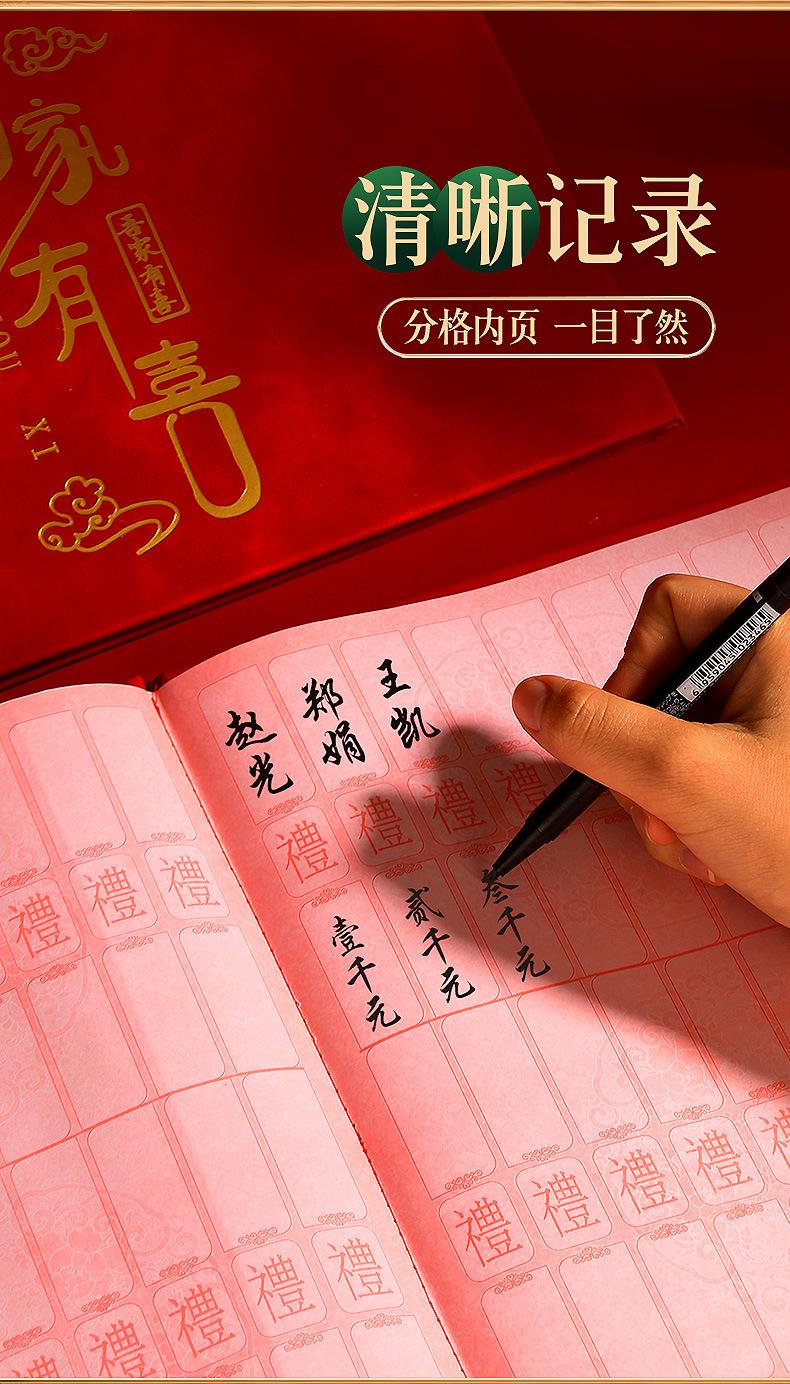 清晰记录
分格内页 一目了然
家有喜
吾家有喜
XI
赵光
郑娟
王凯
禮 禮 禮 禮
壹千元
贰千元
叁千元
禮 禮 禮
禮 禮 禮 禮
禮 禮 禮 禮 禮
6959045023465